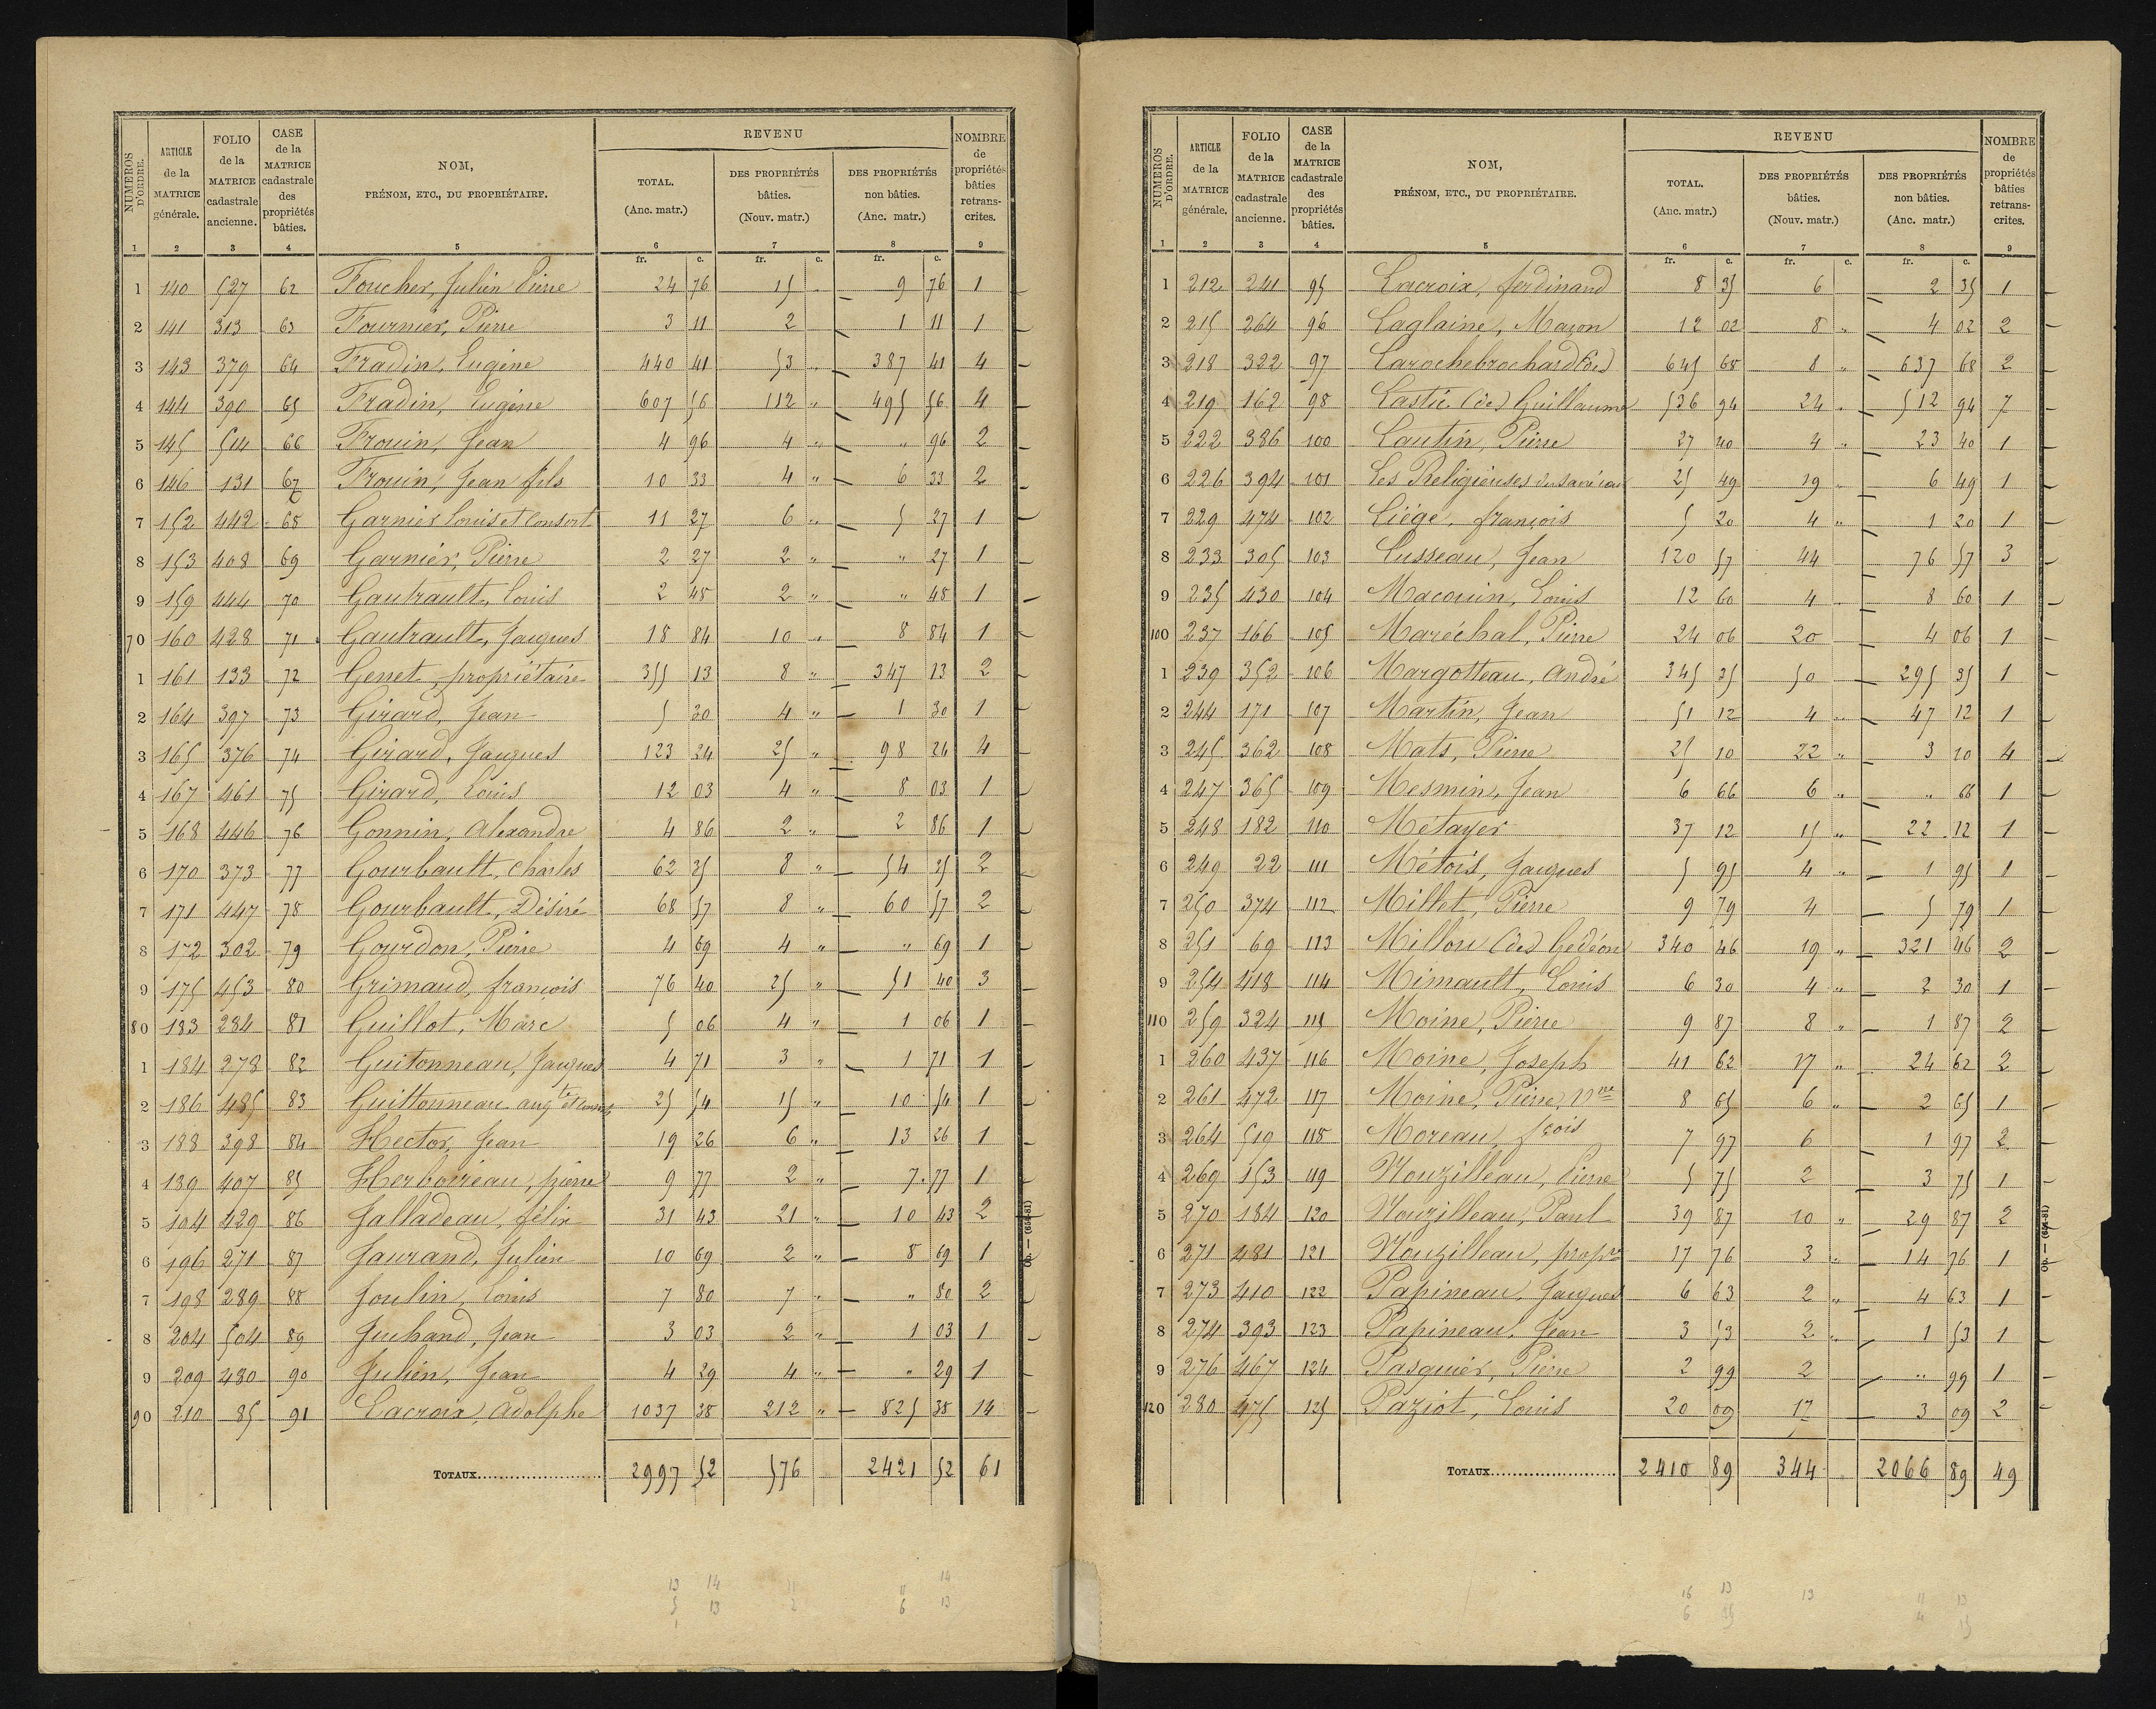 NUMÉROS D'ORDRE. | ARTICLE de la MATRICE générale. | FOLIO de la MATRICE cadastrale ancienne. | CASE de la MATRICE cadastrale des propriétés bâties. | NOM, PRÉNOM, ETC., DU PROPRIÉTAIRE. | REVENU | TOTAL. (Anc. matr.) | DES PROPRIÉTÉS bâties. (Nouv. matr.) | DES PROPRIÉTÉS non bâties. (Anc. matr.) | NOMBRE de propriétés bâties retranscrites.
1 2 3 4 5 6 7 8 9
fr. c. fr. c. fr. c.
1 140 527 62 Foucher, Julien Pierre 24 76 15 " 9 76 1
2 141 313 63 Fournier, Pierre 3 11 2 1 11 1
3 143 379 64 Fradin, Eugène 440 41 53 " 387 41 4
4 144 390 65 Fradin, Eugène 607 56 112 " 495 56 4
5 145 514 66 Frouin, Jean 4 96 4 " " 96 2
6 146 131 67 Frouin, Jean fils 10 33 4 " 6 33 2
7 152 442 68 Garnier Louis et Consort 11 27 6 " 5 27 1
8 153 408 69 Garnier, Pierre 2 27 2 " " 27 1
9 159 444 70 Gautrault, Louis 2 48 2 " " 48 1
70 160 428 71 Gautrault, Jacques 18 84 10 " 8 84 1
1 161 133 72 Genet, propriétaire 355 13 8 " 347 13 2
2 164 397 73 Girard, Jean 5 30 4 " 1 30 1
3 165 376 74 Girard, Jacques 123 24 25 " 98 24 4
4 167 461 75 Girard, Louis 12 03 4 " 8 03 1
5 168 446 76 Gonnin, Alexandre 4 86 2 " 2 86 1
6 170 373 77 Gourbault, Charles 62 35 8 " 54 35 2
7 171 447 78 Gourbault, Désiré 68 57 8 " 60 57 2
8 172 302 79 Gourdon, Pierre 4 69 4 " " 69 1
9 175 453 80 Grimaud, françois 76 40 25 " 51 40 3
80 183 284 81 Guillot, Marc 5 06 4 " 1 06 1
1 184 278 82 Guitonneau, Jacques 4 71 3 " 1 71 1
2 186 485 83 Guittonneau augte et 25 54 15 " 10 54 1
3 188 398 84 Hector, Jean 19 26 6 " 13 26 1
4 189 407 85 Herboireau, pierre 9 77 2 " 7 77 1
5 194 429 86 Jalladeau, félix 31 43 21 " 10 43 2
6 196 271 87 Jaurand, Julien 10 69 2 " 8 69 1
7 198 289 88 Joulin, Louis 7 80 7 " " 80 2
8 204 504 89 Juchand, Jean 3 03 2 " 1 03 1
9 209 480 90 Julien, Jean 4 29 4 " " 29 1
90 210 85 91 Lacroix, Adolphe 1037 38 212 " 825 38 14
TOTAUX 2997 52 576 2421 52 61
Op. — (654-81)
13 14 11 11 14
5 13 2 6 13
1
NUMÉROS D'ORDRE. | ARTICLE de la MATRICE générale. | FOLIO de la MATRICE cadastrale ancienne. | CASE de la MATRICE cadastrale des propriétés bâties. | NOM, PRÉNOM, ETC., DU PROPRIÉTAIRE. | REVENU | TOTAL. (Anc. matr.) | DES PROPRIÉTÉS bâties. (Nouv. matr.) | DES PROPRIÉTÉS non bâties. (Anc. matr.) | NOMBRE de propriétés bâties retranscrites.
1 2 3 4 5 6 7 8 9
fr. c. fr. c. fr. c.
1 212 241 95 Lacroix, ferdinand 8 35 6 2 35 1
2 215 264 96 Laglaine, Maçon 12 02 8 " 4 02 2
3 218 322 97 Larochebrochard (de) 645 68 8 " 637 68 2
4 219 162 98 Lastic (de) Guillaume 536 94 24 " 512 94 7
5 222 386 100 Lautin, Pierre 27 40 4 " 23 40 1
6 226 394 101 Les Religieuses du 25 49 19 " 6 49 1
7 229 474 102 Liège, françois 5 20 4 " 1 20 1
8 233 305 103 Lusseau, Jean 120 57 44 76 57 3
9 235 430 104 Macouin, Louis 12 60 4 " 8 60 1
100 237 166 105 Maréchal, Pierre 24 06 20 4 06 1
1 239 352 106 Margotteau, André 345 35 50 295 35 1
2 244 171 107 Martin, Jean 51 12 4 " 47 12 1
3 245 362 108 Mats, Pierre 25 10 22 " 3 10 4
4 247 365 109 Mesmin, Jean 6 66 6 " " 66 1
5 248 182 110 Métayer 37 12 15 " 22 12 1
6 249 22 111 Métois, Jacques 5 95 4 " 1 95 1
7 250 374 112 Millet, Pierre 9 79 4 5 79 1
8 251 69 113 Millon (de) Gedéon 340 46 19 " 321 46 2
9 254 418 114 Mimault, Louis 6 30 4 " 2 30 1
110 259 324 115 Moine, Pierre 9 87 8 " 1 87 2
1 260 437 116 Moine, Joseph 41 62 17 " 24 62 2
2 261 472 117 Moine, Pierre, Vve 8 65 6 " 2 65 1
3 264 519 118 Moreau, fçois 7 97 6 1 97 2
4 269 153 119 Nouzilleau, Pierre 5 75 2 3 75 1
5 270 184 120 Nouzilleau, Paul 39 87 10 " 29 87 2
6 271 481 121 Nouzilleau, propre 17 76 3 " 14 76 1
7 273 410 122 Papineau, Jacques 6 63 2 " 4 63 1
8 274 393 123 Papineau, Jean 3 53 2 " 1 53 1
9 276 467 124 Pasquier, Pierre 2 99 2 " 99 1
120 280 475 125 Paziot, Louis 20 09 17 3 09 2
TOTAUX 2410 89 344 2066 89 49
Op. — (654-81)
16 13 13 11 13
6 4 15